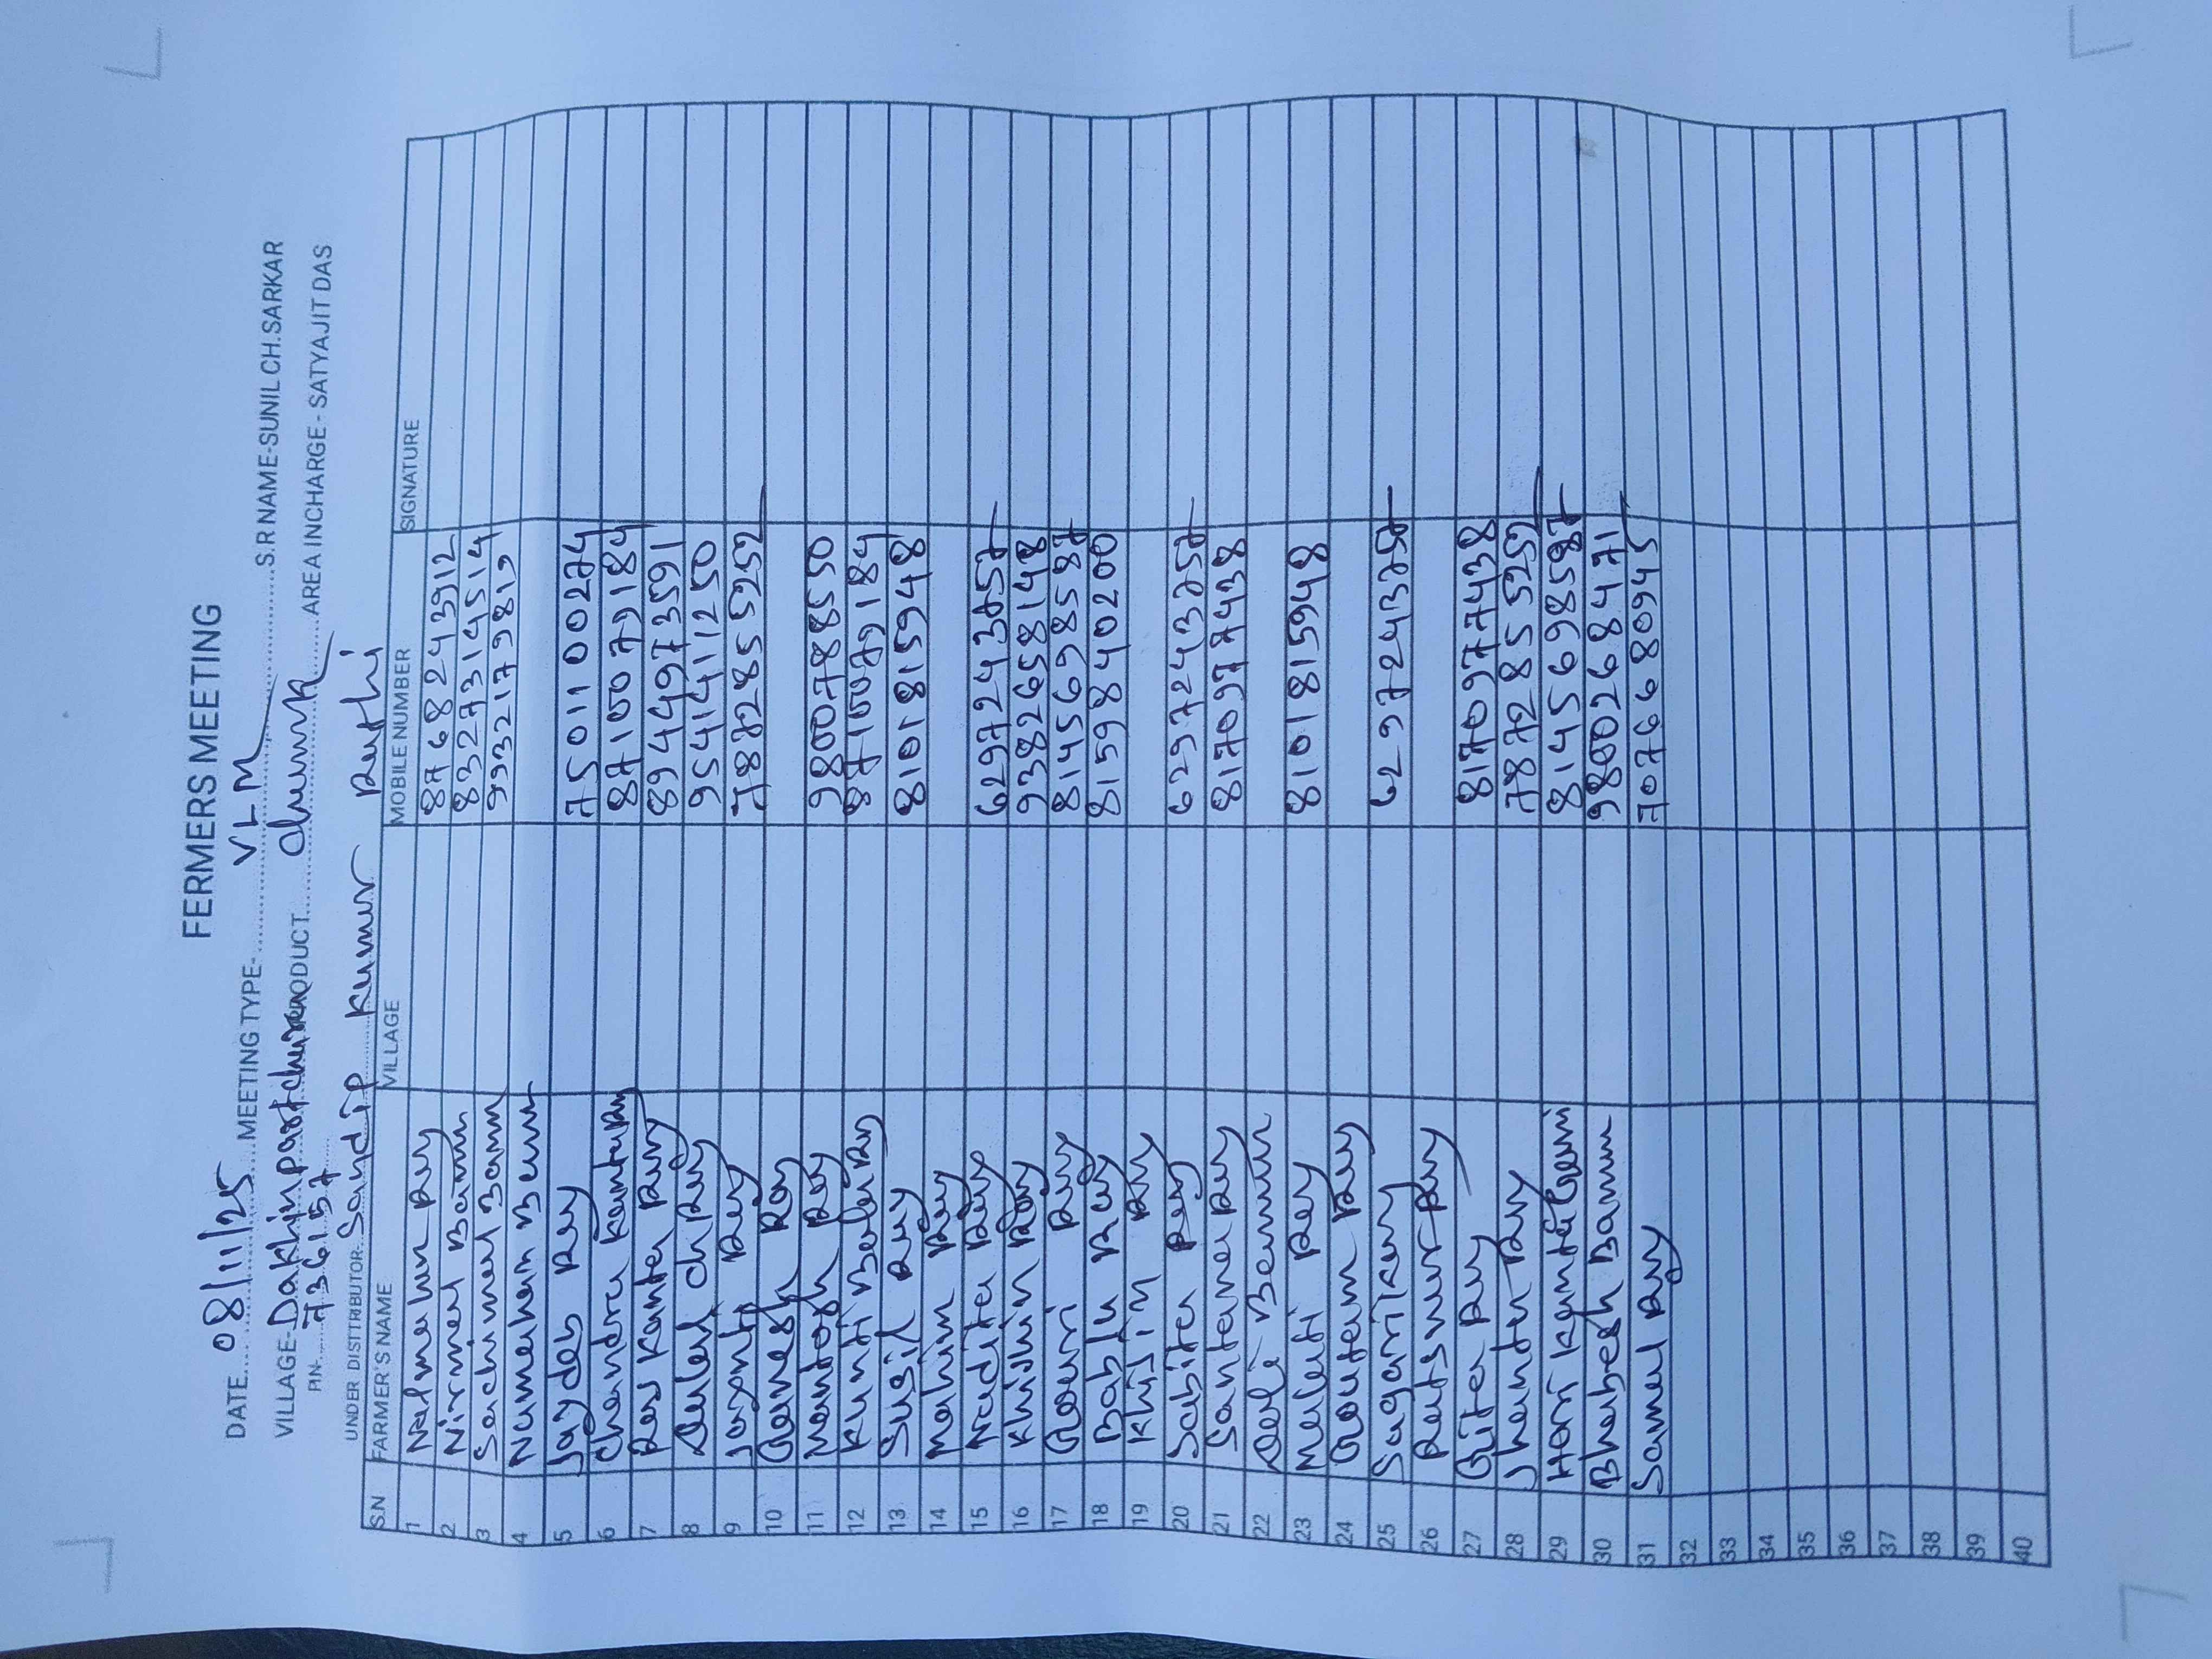 FERMERS MEETING
DATE....08/11/25....MEETING TYPE-....VLM....S.R NAME-SUNIL CH.SARKAR
VILLAGE-Dakhinpatchura PRODUCT....Chumk....AREA INCHARGE- SATYAJIT DAS
PIN-....736157
UNDER DISTTRIBUTOR...Sandip Kumar Rathi
S.N FARMER'S NAME VILLAGE MOBILE NUMBER SIGNATURE
1 Nalmahan Ray 8768243912
2 Nirmal Barman 8327314514
3 Sachimal Barman 9932179819
4 Narmohan Barman
5 Jaydeb Ray 7501100274
6 Chandra Kanta Ray 8710079184
7 Ras Kanta Ray 8944973591
8 Dulal ch Ray 9541411250
9 Jaxonto Ray 7872855252
10 Ganesh Ray
11 Mantosh Ray 9800788550
12 Kunti Bala Ray 8710079184
13 Susil Ray 8101815948
14 Mohim Ray
15 Nadita Ray 6297243757
16 Khishin Roy 9382658148
17 Gouri Ray 8145698587
18 Bablu Ray 8159840200
19 Khisin Ray
20 Sabita Ray 6297243757
21 Santana Ray 8170977438
22 Deli Barman
23 Malati Ray 8101815948
24 Goutam Ray
25 Sagari Ray 6297243757
26 Ratswar Ray
27 Gita Ray 8170977438
28 Jhantu Ray 7872855252
29 Hori Kanta Barman 8145698587
30 Bhabesh Barman 9800268471
31 Samal Ray 7076680945
32
33
34
35
36
37
38
39
40